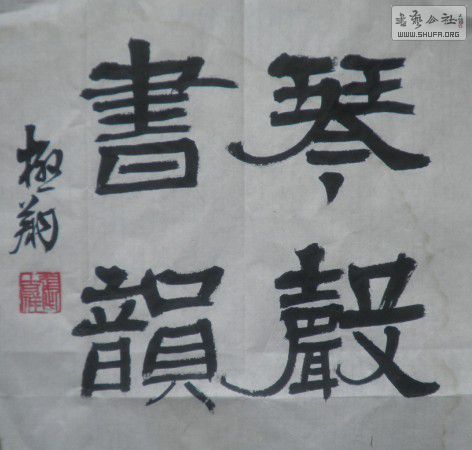 琴聲
書韻
極翔
書藝公社
WWW.SHUFA.ORG